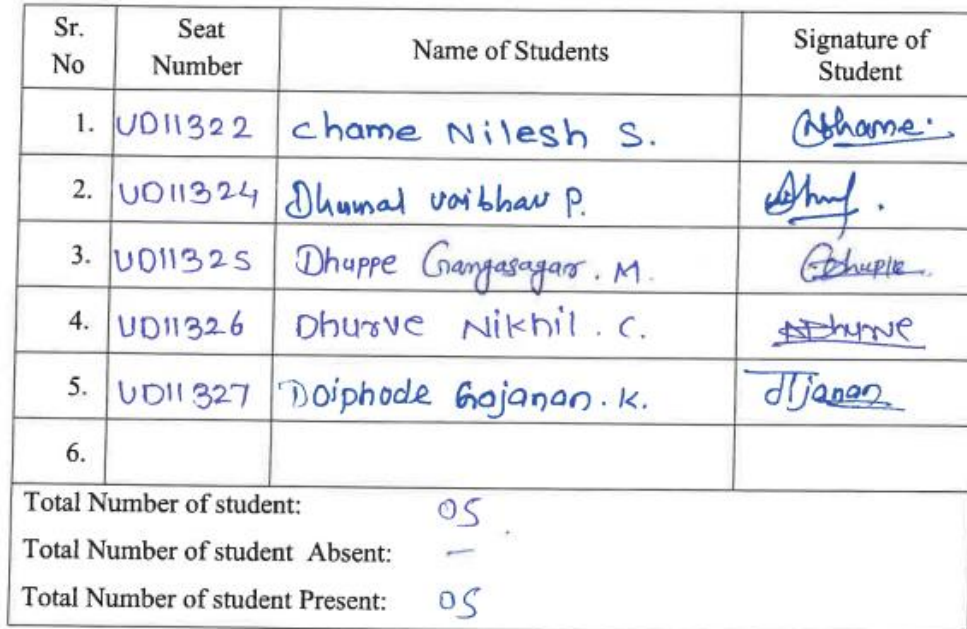 Sr. No Seat Number Name of Students Signature of Student
1. UD11322 Chame Nilesh S. Nchame.
2. UD11324 Dhumal vaibhav P.
3. UD11325 Dhuppe Gangasagar. M.
4. UD11326 Dhurve Nikhil. C. NDhurve
5. UD11327 Doiphode Gajanan. K.
6.
Total Number of student: 05
Total Number of student Absent: —
Total Number of student Present: 05